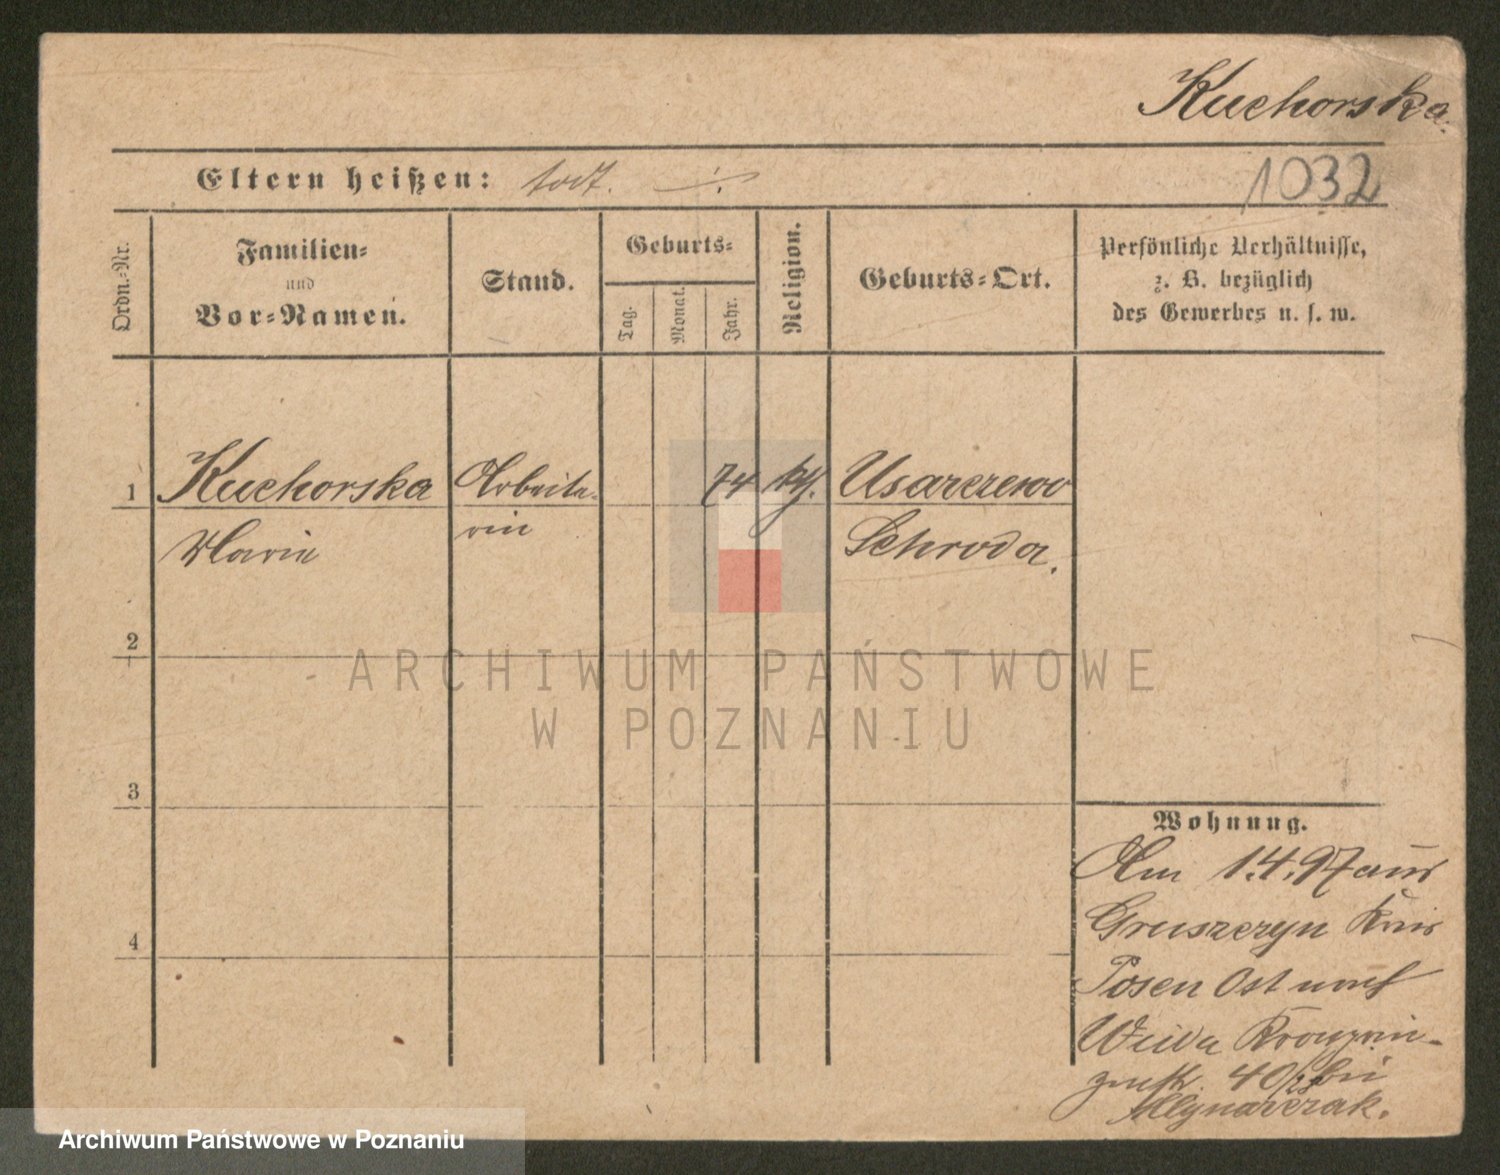 Kuchorska.
1032
Eltern heißen: todt. ·/.
Ordn.=Nr.
Familien=
und
Vor=Namen.
Stand.
Geburts=
Tag.
Monat.
Jahr.
Religion.
Geburts=Ort.
Persönliche Verhältnisse,
z. B. bezüglich
des Gewerbes u. s. w.
1 Kuchorska Arbeite- 74 kth. Usarzewo
Marie rin Schroda.
2
3
4
Wohnung.
Am 1.4.97 aus
Gruszczyn Kreis
Posen Ost nach
Wilda Kronprin-
zenstr. 40 bei
Mlynarczak.
ARCHIWUM PAŃSTWOWE
W POZNANIU
Archiwum Państwowe w Poznaniu